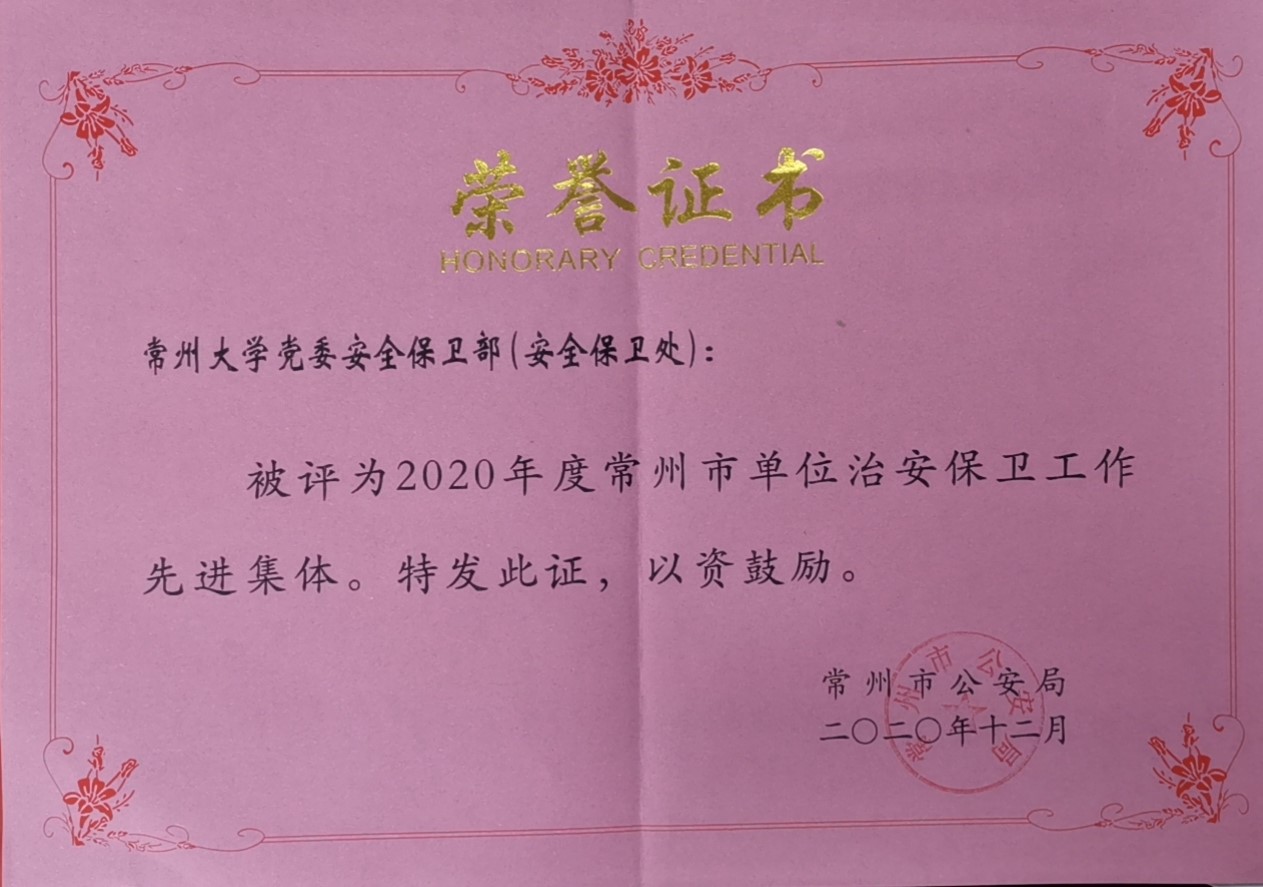 荣誉证书
HONORARY CREDENTIAL
常州大学党委安全保卫部(安全保卫处):
被评为2020年度常州市单位治安保卫工作
先进集体。特发此证，以资鼓励。
常州市公安局
二〇二〇年十二月
常州市公安局